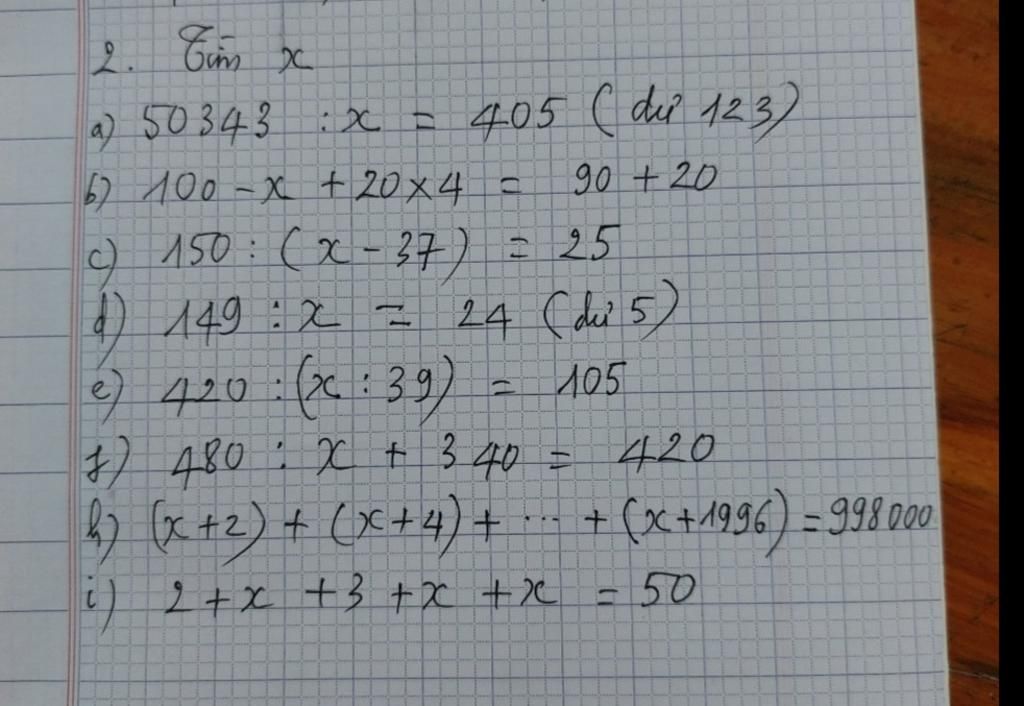 2. Tìm x
a) 50343 : x = 405 (dư 123)
b) 100 - x + 20 x 4 = 90 + 20
c) 150 : (x - 37) = 25
d) 149 : x = 24 (dư 5)
e) 420 : (x : 39) = 105
f) 480 : x + 340 = 420
h) (x + 2) + (x + 4) + ... + (x + 1996) = 998000
i) 2 + x + 3 + x + x = 50